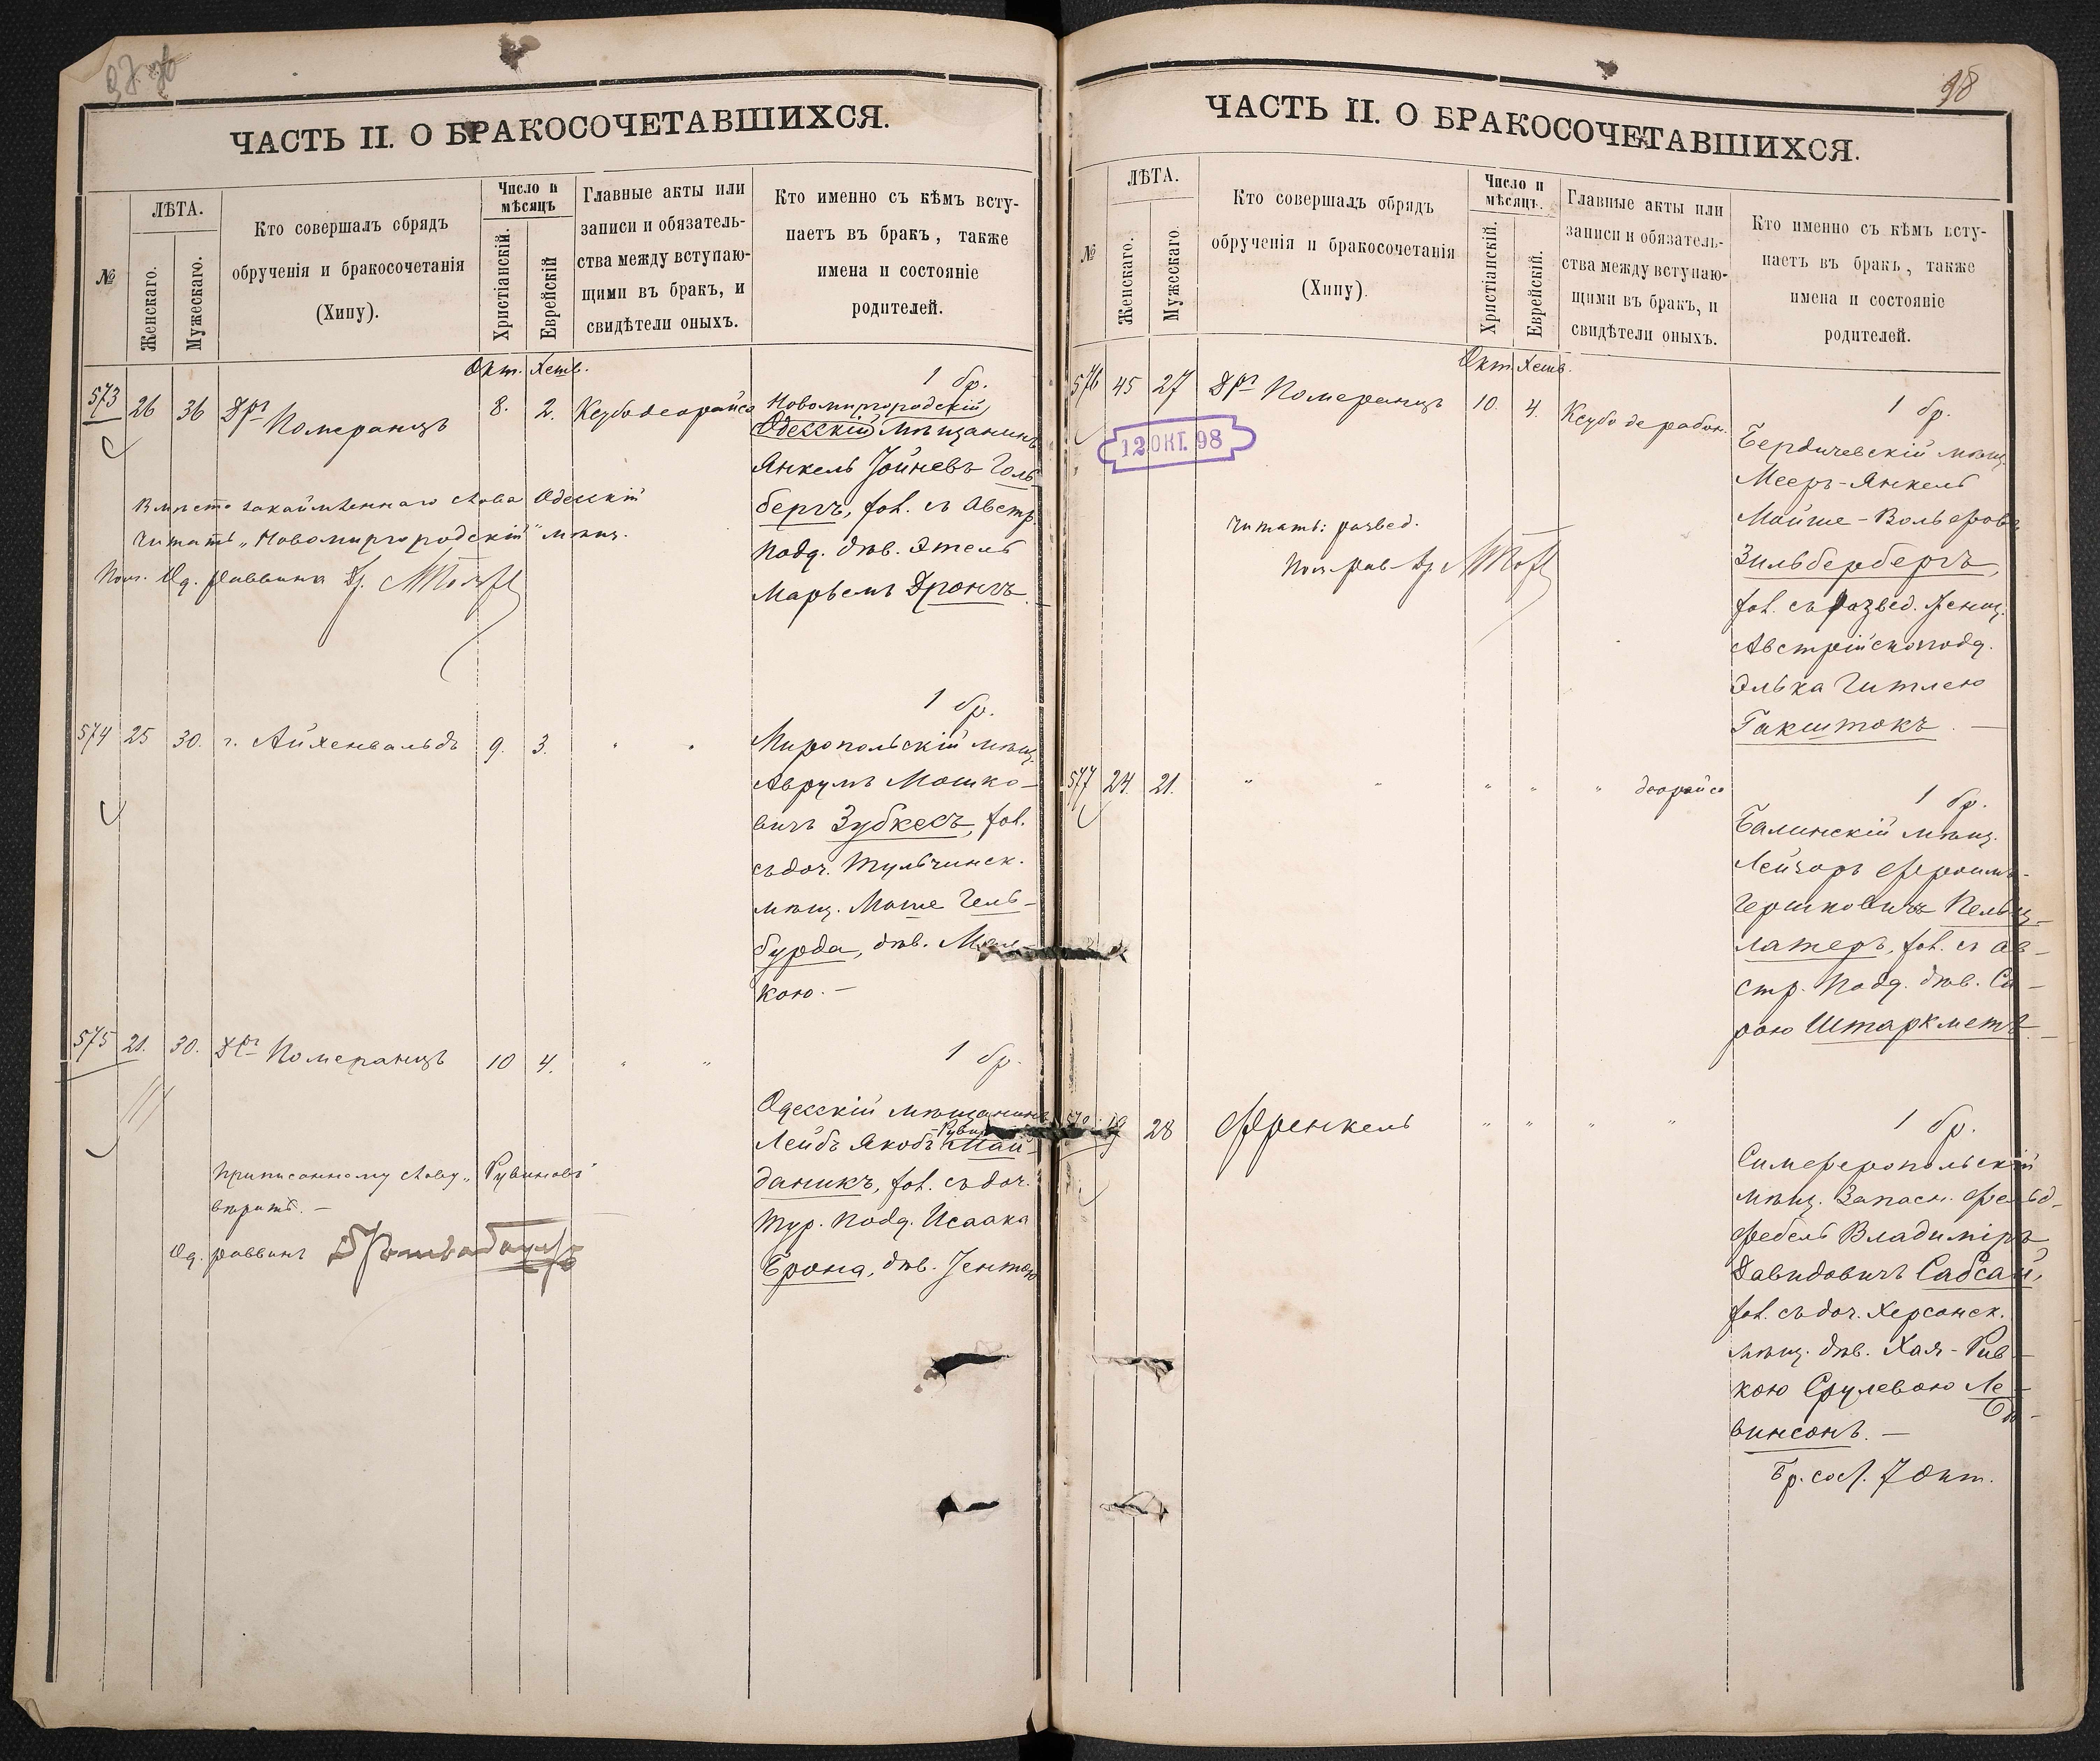 ЧАСТЬ II. О БРАКОСОЧЕТАВШИХСЯ.
№
ЛѢТА.
Женскаго.
Мужескаго.
Кто совершалъ обрядъ
обрученія и бракосочетанія
(Хипу).
Число и
мѣсяцъ
Христіанскій.
Еврейскій
Главные акты или
записи и обязатель-
ства между вступаю-
щими въ бракъ, и
свидѣтели оныхъ.
Кто именно съ кѣмъ всту-
паетъ въ бракъ, также
имена и состояніе
родителей.
Окт. Хешв.
573 26 36 Дръ Померанцъ 8. 2. Ксубо деорайсо
1 бр.
Новомиргородскій
Одесскій мѣщанинъ
Янкель Іойневъ Голь-
бергъ, хол. съ Австр.
подд. дѣв. Этель
Марьемъ Дронгъ
Вмѣсто закаймленнаго слова Одесскій
читать „Новомиргородскій" мѣщ.
Пом. Од. раввина Др.
574 25 30. г. Айхенвальдъ 9. 3. " "
1 бр.
Миропольскій мѣщ.
Аврумъ Мошко-
вичъ Зубкесъ, хол.
съ доч. Тульчинск.
мѣщ. Моше Гель-
бурда, дѣв.
кою. —
575 21. 30. Дръ Померанцъ 10 4. " "
1 бр.
Одесскій мѣщанинъ
Лейбъ Якобъ Май-
даникъ, хол. съ доч.
Тур. подд. Исаака
Брона, дѣв. Іентою
Приписанному слову „Рувиновъ"
вѣрить. —
Од. раввинъ
ЧАСТЬ II. О БРАКОСОЧЕТАВШИХСЯ.
98
№
ЛѢТА.
Женскаго.
Мужескаго.
Кто совершалъ обрядъ
обрученія и бракосочетанія
(Хипу).
Число и
мѣсяцъ.
Христіанскій.
Еврейскій.
Главные акты или
записи и обязатель-
ства между вступаю-
щими въ бракъ, и
свидѣтели оныхъ.
Кто именно съ кѣмъ всту-
паетъ въ бракъ, также
имена и состояніе
родителей.
Окт. Хешв.
576 45 27 Дръ Померанцъ 10. 4. Ксубо де рабон.
12 ОКТ. 98
1 бр.
Бердичевскій мѣщ.
Мееръ-Янкель
Мойше-Вольфовъ
Зильбербергъ,
хол. съ развед. женщ.
Австрійскоподд.
Элька Гитлею
Гакштокъ. —
Читать: развед.
Пом. рав. Др.
577 24. 21. " " " " " деорайсо
1 бр.
Балинскій мѣщ.
Лейзоръ Фроимъ-
Гершковичъ Пельц-
латеръ, хол. съ Ав-
стр. подд. дѣв. Са-
рою Штаркметъ. —
19 28 Френкель " " " "
1 бр.
Симферопольскій
мѣщ. Запасн. Фельд-
фебель Владиміръ
Давидовичъ Сабсай,
хол. съ доч. Херсонск.
мѣщ. дѣв. Хая-Рив-
кою Срулевою Ле-
винсонъ. —
Бр. сов. 7 Окт.